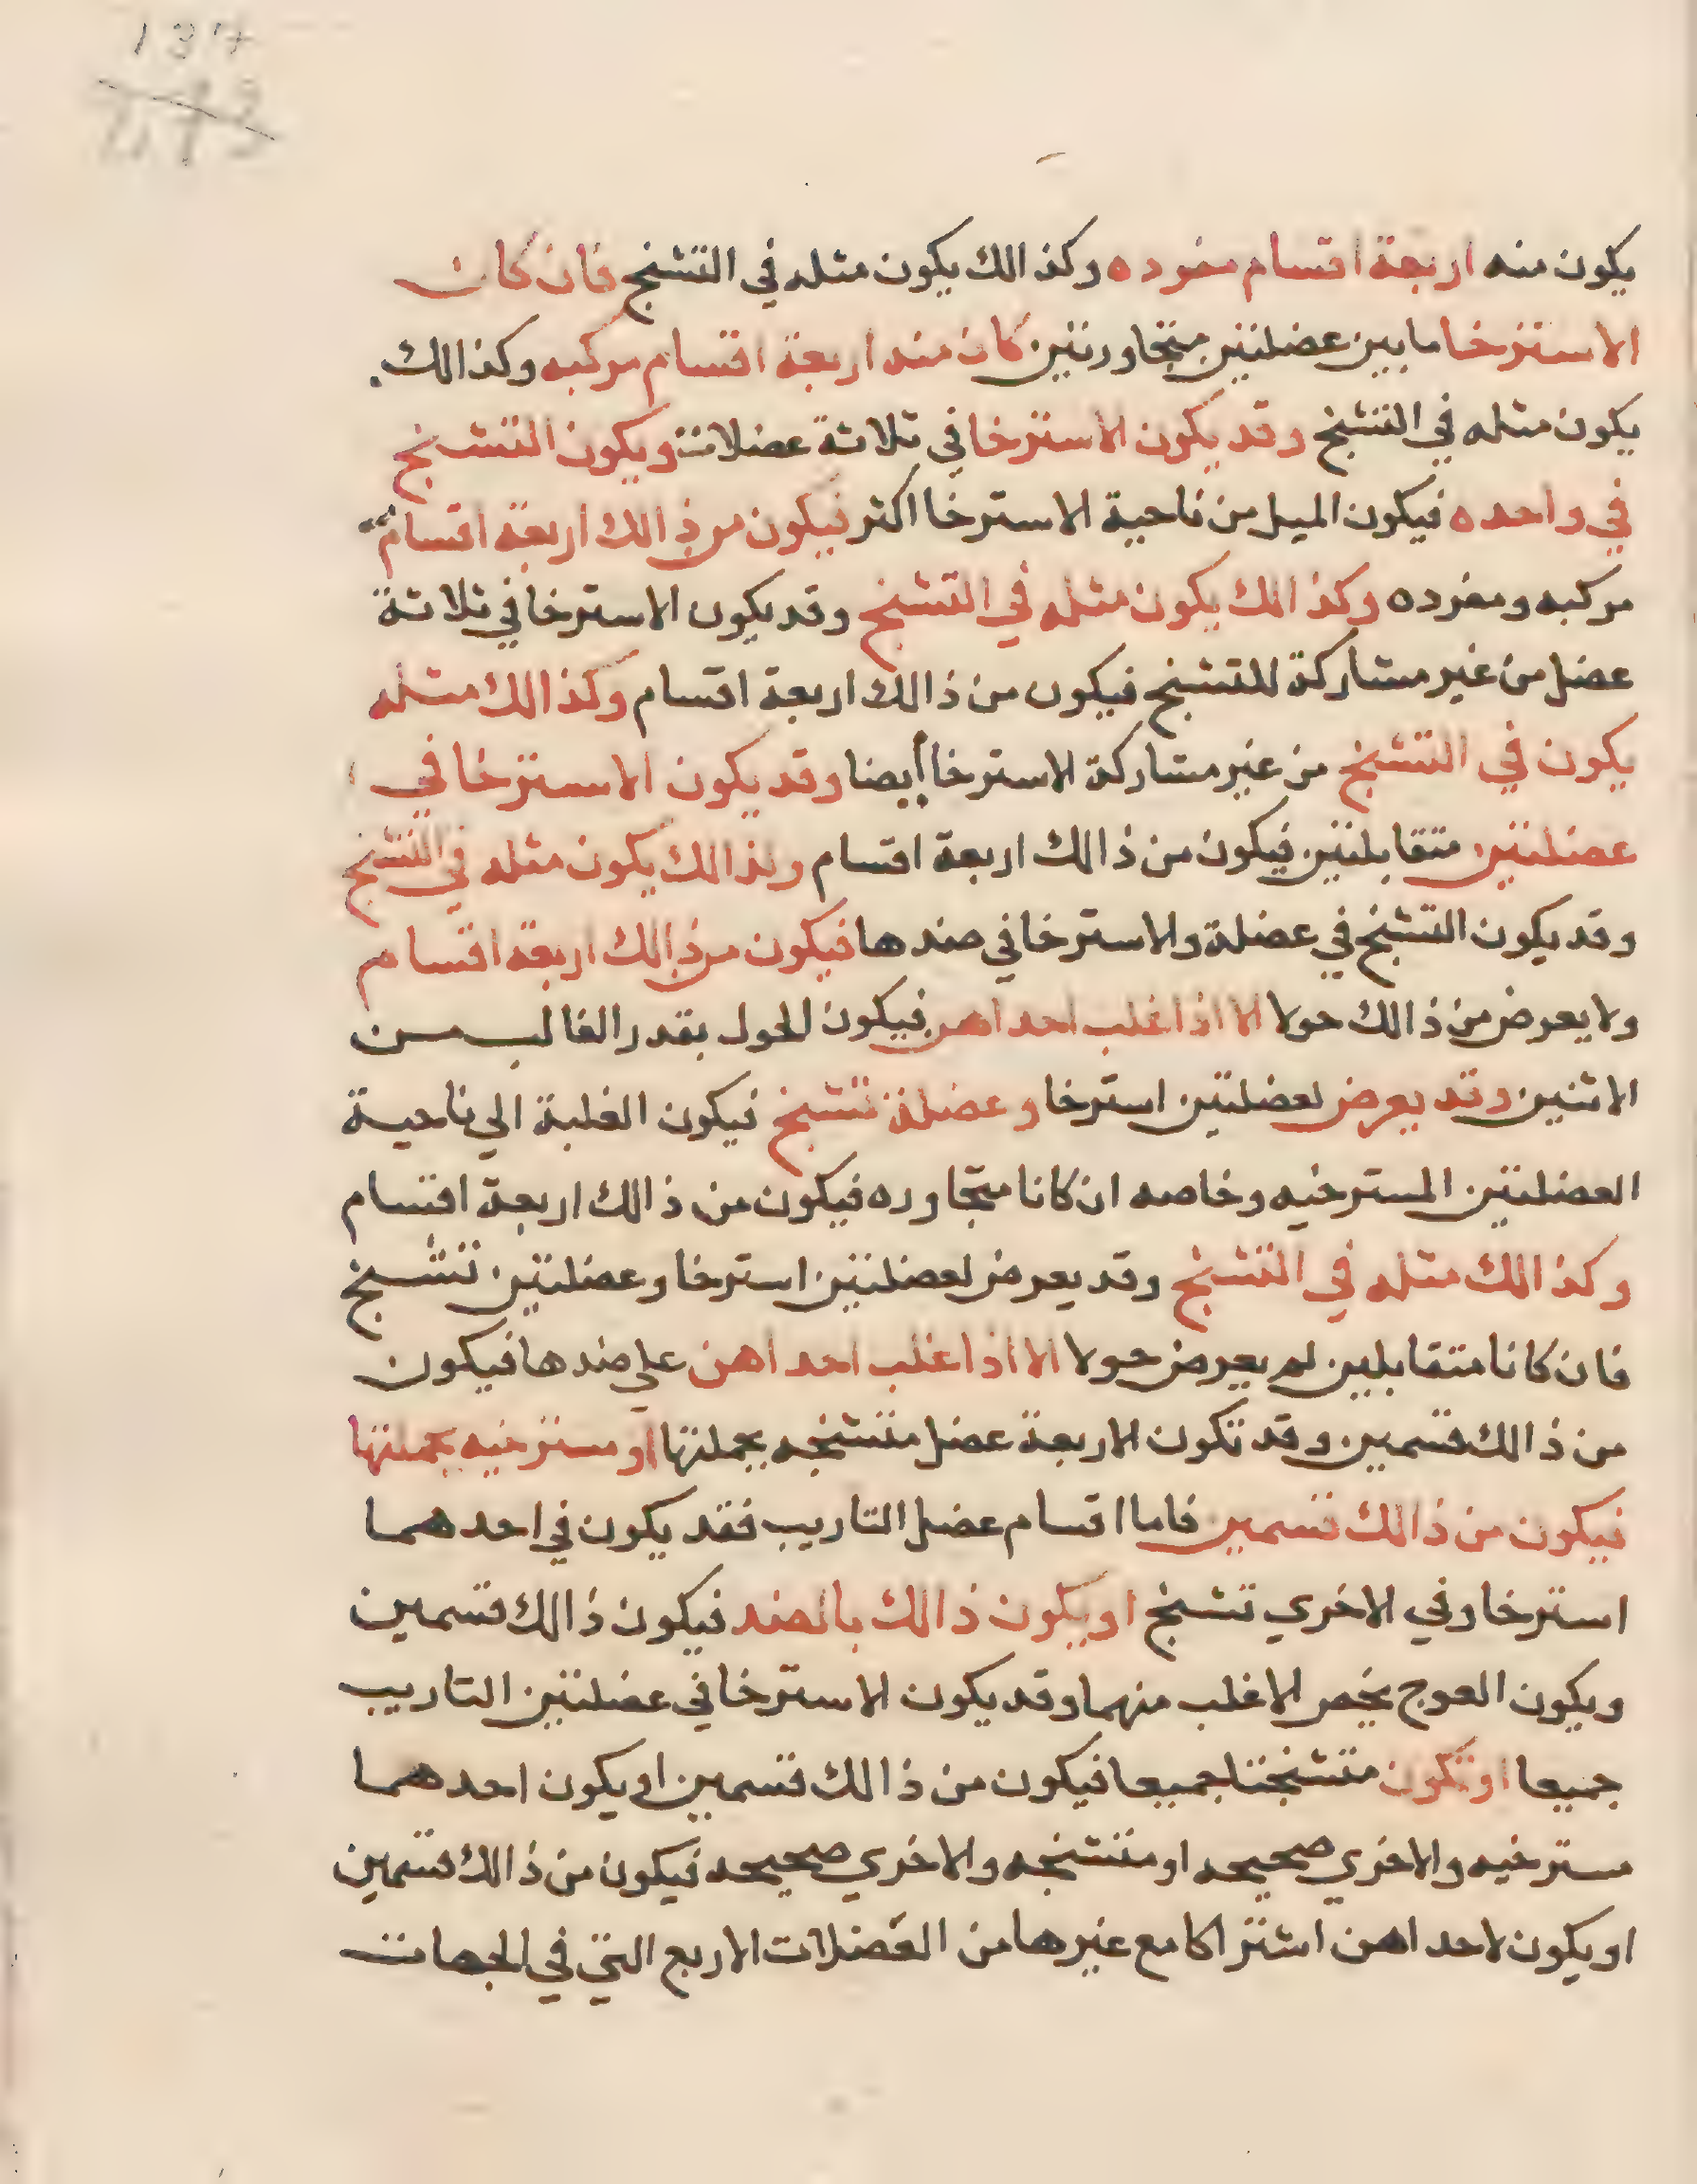 137
يكون منه اربعة اقسام مفرده وكذالك يكون مثله في التشنج فان كان
الاسترخا مابين عضلتين متجاورتين كان منه اربعة اقسام مركبه وكذالك
يكون مثله في التشنج وقد يكون الاسترخا في ثلاثة عضلات ويكون التشنج
في واحده فيكون الميل من ناحية الاسترخا اكثر فيكون من ذالك اربعة اقسام
مركبه ومفرده وكذالك يكون مثله في التشنج وقد يكون الاسترخا في ثلاثة
عضل من غير مشاركة للتشنج فيكون من ذالك اربعة اقسام وكذالك مثله
يكون في التشنج من غير مشاركة الاسترخا أيضا وقد يكون الاسترخا في
عضلتين متقابلتين فيكون من ذالك اربعة اقسام وكذالك يكون مثله في التشنج
وقد يكون التشنج في عضلة والاسترخا في ضدها فيكون من ذالك اربعة اقسام
ولا يعرض من ذالك حولا الا اذا غلب احداهن فيكون الحول بقدر الغالب من
الاثنين وقد يعرض لعضلتين استرخا وعضلة تشنج فيكون الغلبة الي ناحية
العضلتين المسترخيه وخاصه ان كانا متجاوره فيكون من ذالك اربعة اقسام
وكذالك مثله في التشنج وقد يعرض لعضلتين استرخا وعضلتين تشنج
فان كانا متقابلين لم يعرض حولا الا اذا غلب احداهن علي ضدها فيكون
من ذالك قسمين وقد تكون الاربعة عضل متشنجه بجملتها أو مسترخيه بجملتها
فيكون من ذالك قسمين فاما اقسام عضل التاريب فقد يكون في احدهما
استرخا وفي الاخري تشنج او يكون ذالك بالضد فيكون ذالك قسمين
ويكون العوج يخص الاغلب منهما وقد يكون الاسترخا في عضلتين التاريب
جميعا او تكون متشنجتا جميعا فيكون من ذالك قسمين او يكون احدهما
مسترخيه والاخري صحيحه او متشنجه والاخري صحيحه فيكون من ذالك قسمين
او يكون لاحداهن اشتراكا مع غيرها من العضلات الاربع التي في الجهات